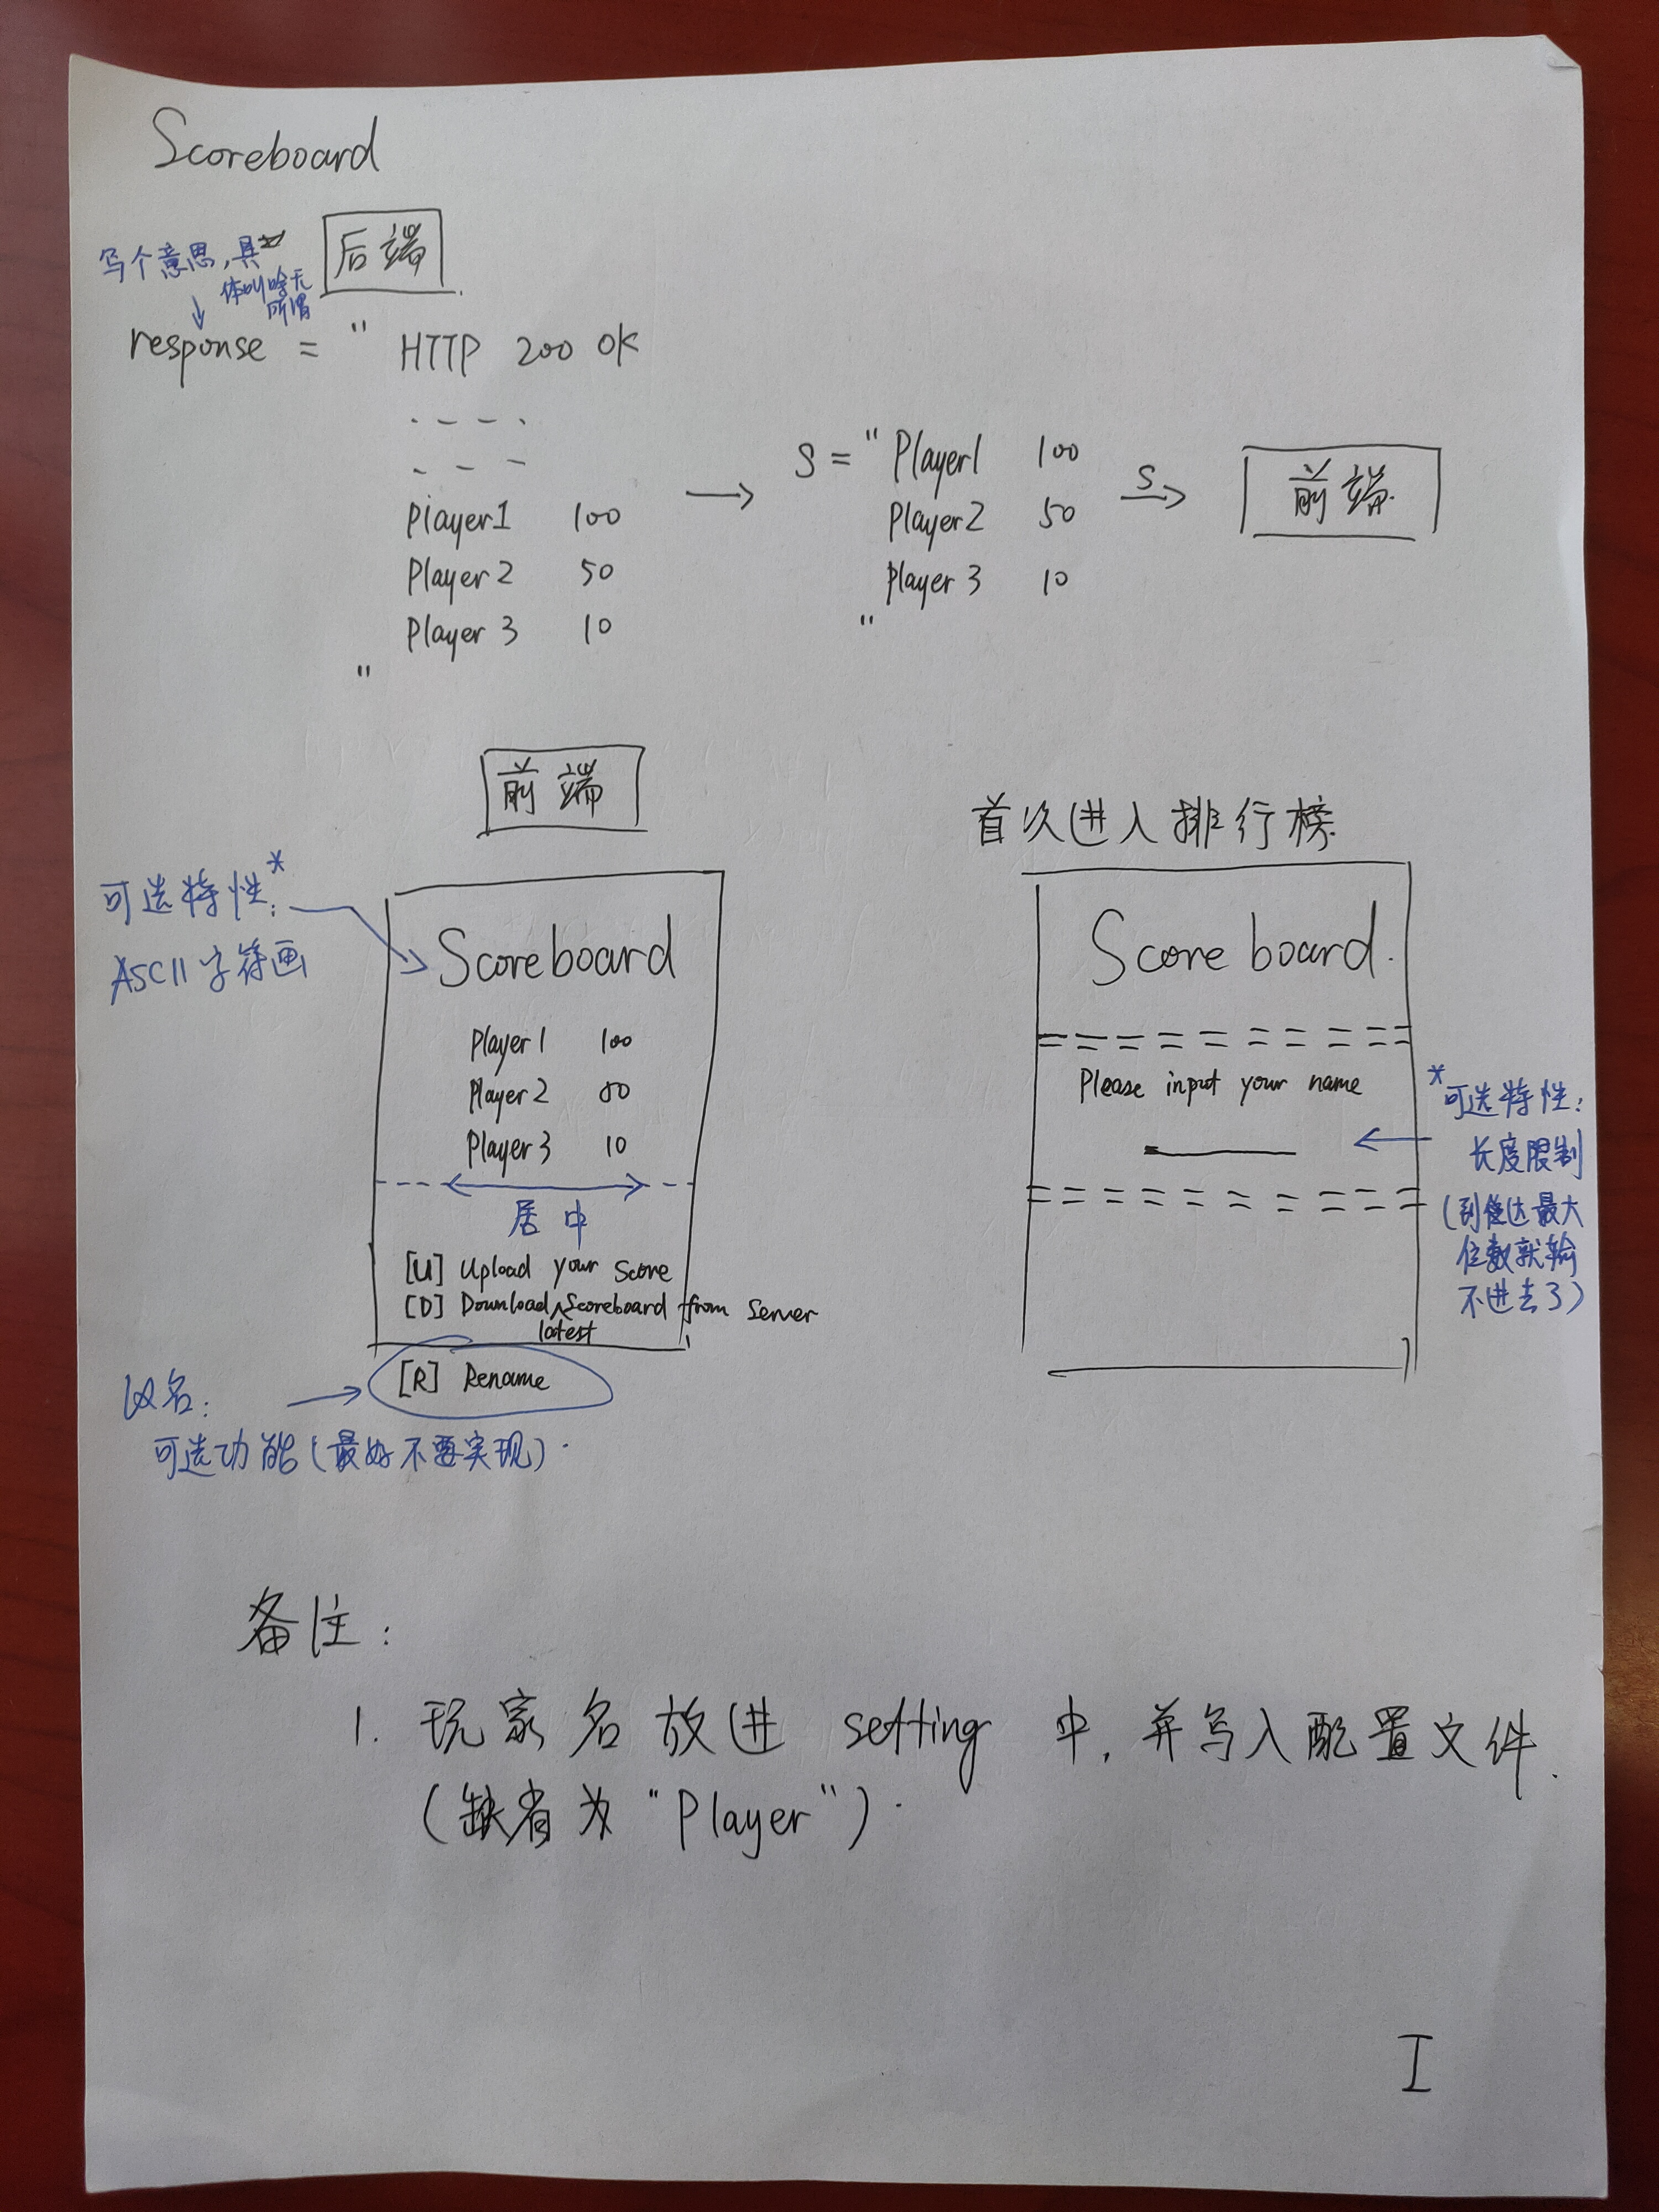 Scoreboard
后端
写个意思,具
体叫啥无
所谓
response = " HTTP 200 OK
Player1 100
Player 2 50
Player 3 10
"
S = " Player1 100
Player2 50
Player 3 10
"
S
前端
前端
可选特性:*
ASCII字符画
Scoreboard
Player 1 100
Player 2 80
Player 3 10
居中
[U] Upload your score
[D] Download latest Scoreboard from Server
[R] Rename
改名:
可选功能(最好不要实现).
首次进入排行榜
Scoreboard.
==========
Please input your name
==========
*可选特性:
长度限制
(到达最大
位数就输
不进去了)
备注:
1. 玩家名放进 setting 中, 并写入配置文件.
(缺省为 "Player").
I